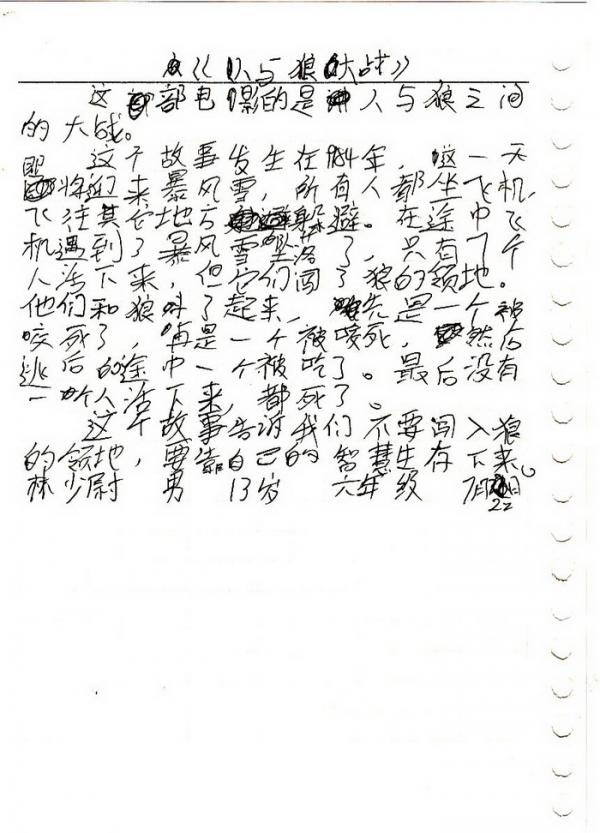 《人与狼大战》
这部电影的是人与狼之间
的大战。
这个故事发生在1984年，这一天
即将来暴风雪，所有人都坐飞机，
飞往其它地方躲避。在途中飞
机遇到了暴风雪坠落了，只有7个
人活下来，但它们闯了狼的领地。
他们和狼斗了起来，先是一个被
咬死了，再是一个被咬死，然后
逃后的途中一个被吃了。最后没有
一个人活下来，都死了。
这个故事告诉我们不要闯入狼
的领地，要靠自己的智慧生存下来。
林少尉 男 13岁 六年级 7月 日
22